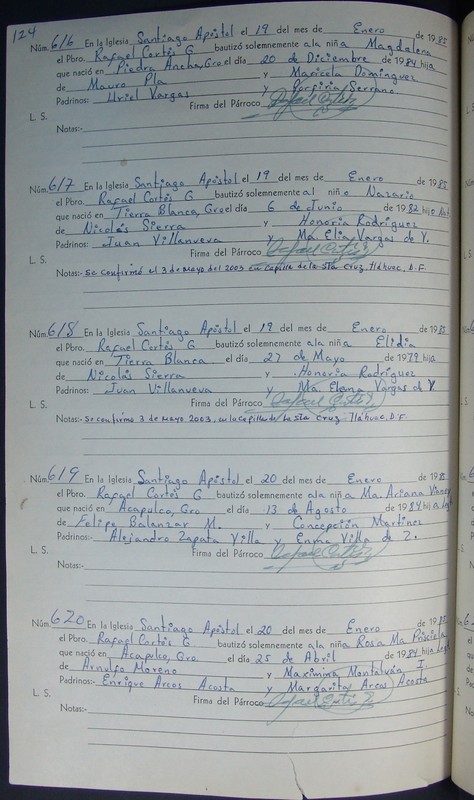 124
Núm. 616 En la Iglesia Santiago Apóstol el 19 del mes de Enero de 1985
el Pbro. Rafael Cortés G bautizó solemnemente a la niña Magdalena
que nació en Piedra Ancha, Gro el día 20 de Diciembre de 1984 hija
de Mauro Pla y Maricela Dominguez
Padrinos: Uriel Vargas y Porfiria Serrano
L. S. Firma del Párroco
Notas:-
Núm. 617 En la Iglesia Santiago Apóstol el 19 del mes de Enero de 1985
el Pbro. Rafael Cortés G bautizó solemnemente al niño Nazario
que nació en Tierra Blanca, Gro el día 6 de Junio de 1982 hijo
de Nicolás Sierra y Honoria Rodríguez
Padrinos: Juan Villanueva y Ma Elia Vargas de V.
L. S. Firma del Párroco
Notas:- Se confirmó el 3 de Mayo del 2003 en Capilla de la Sta Cruz. Tláhuac, D.F
Núm. 618 En la Iglesia Santiago Apóstol el 19 del mes de Enero de 1985
el Pbro. Rafael Cortés G bautizó solemnemente a la niña Elidia
que nació en Tierra Blanca el día 27 de Mayo de 1979 hija
de Nicolás Sierra y Honoria Rodríguez
Padrinos: Juan Villanueva y Ma. Elena Vargas d V
L. S. Firma del Párroco
Notas:- Se confirmo 3 de Mayo 2003, en la Capilla de la Sta Cruz Tláhuac, D.F.
Núm. 619 En la Iglesia Santiago Apóstol el 20 del mes de Enero de 1985
el Pbro. Rafael Cortés G bautizó solemnemente a la niña Ma. Ariana
que nació en Acapulco, Gro. el día 13 de Agosto de 1984 hija
de Felipe Balanzar M. y Concepción Martinez
Padrinos:- Alejandro Zapata Villa y Enma Villa de Z.
L. S. Firma del Párroco
Notas:-
Núm. 620 En la Iglesia Santiago Apóstol el 20 del mes de Enero de 1985
el Pbro. Rafael Cortés G bautizó solemnemente a la niña Rosa Ma Priscila
que nació en Acapulco, Gro. el día 25 de Abril de 1984 hija
de Arnulfo Moreno y Maximina Montalván I
Padrinos:- Enrique Arcos Acosta y Margarita Arcos Acosta
L. S. Firma del Párroco
Notas:-